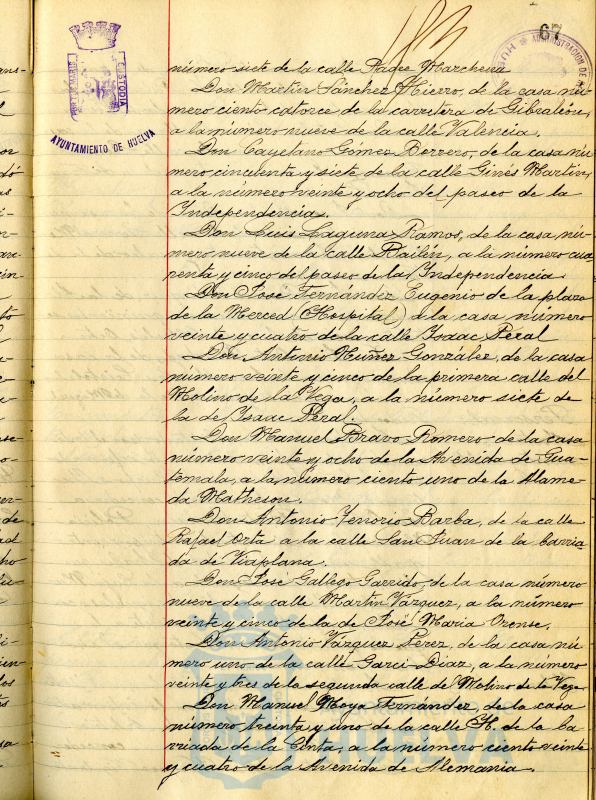 67
PORTUS MARIS
CUSTODIA
AYUNTAMIENTO DE HUELVA
ADMINISTRACION DE
número siete de la calle Padre Marchena
Don Martín Sánchez Hierro, de la casa nú-
mero ciento catorce de la carretera de Gibraleón,
a la número nueve de la calle Valencia.
Don Cayetano Gómez Borrero, de la casa nú-
mero cincuenta y siete de la calle Ginés Martín,
a la número veinte y ocho del paseo de la
Independencia.
Don Luis Laguna Ramos, de la casa nú-
mero nueve de la calle Bailén, a la número cua
renta y cinco del paseo de la Independencia
Don José Fernández Eugenio de la plaza
de la Merced (Hospital) a la casa número
veinte y cuatro de la calle Isaac Peral
Don Antonio Núñez González, de la casa
número veinte y cinco de la primera calle del
Molino de la Vega, a la número siete de
la de Isaac Peral.
Don Manuel Bravo Romero de la casa
número veinte y ocho de la Avenida de Gua-
temala, a la número ciento uno de la Alame-
da Matheson.
Don Antonio Tenorio Barba, de la calle
Rafael Orta a la calle San Juan de la barria-
da de Viaplana.
Don José Gallego Garrido, de la casa número
nueve de la calle Martín Vázquez, a la número
veinte y cinco de la de José María Orense.
Don Antonio Vázquez Pérez, de la casa nú
mero uno de la calle Garci-Díaz, a la número
veinte y tres de la segunda calle del Molino de la Vega
Don Manuel Moya Fernández, de la casa
número treinta y uno de la calle H. de la ba
rriada de la Cinta, a la número ciento veinte
y cuatro de la Avenida de Alemania.